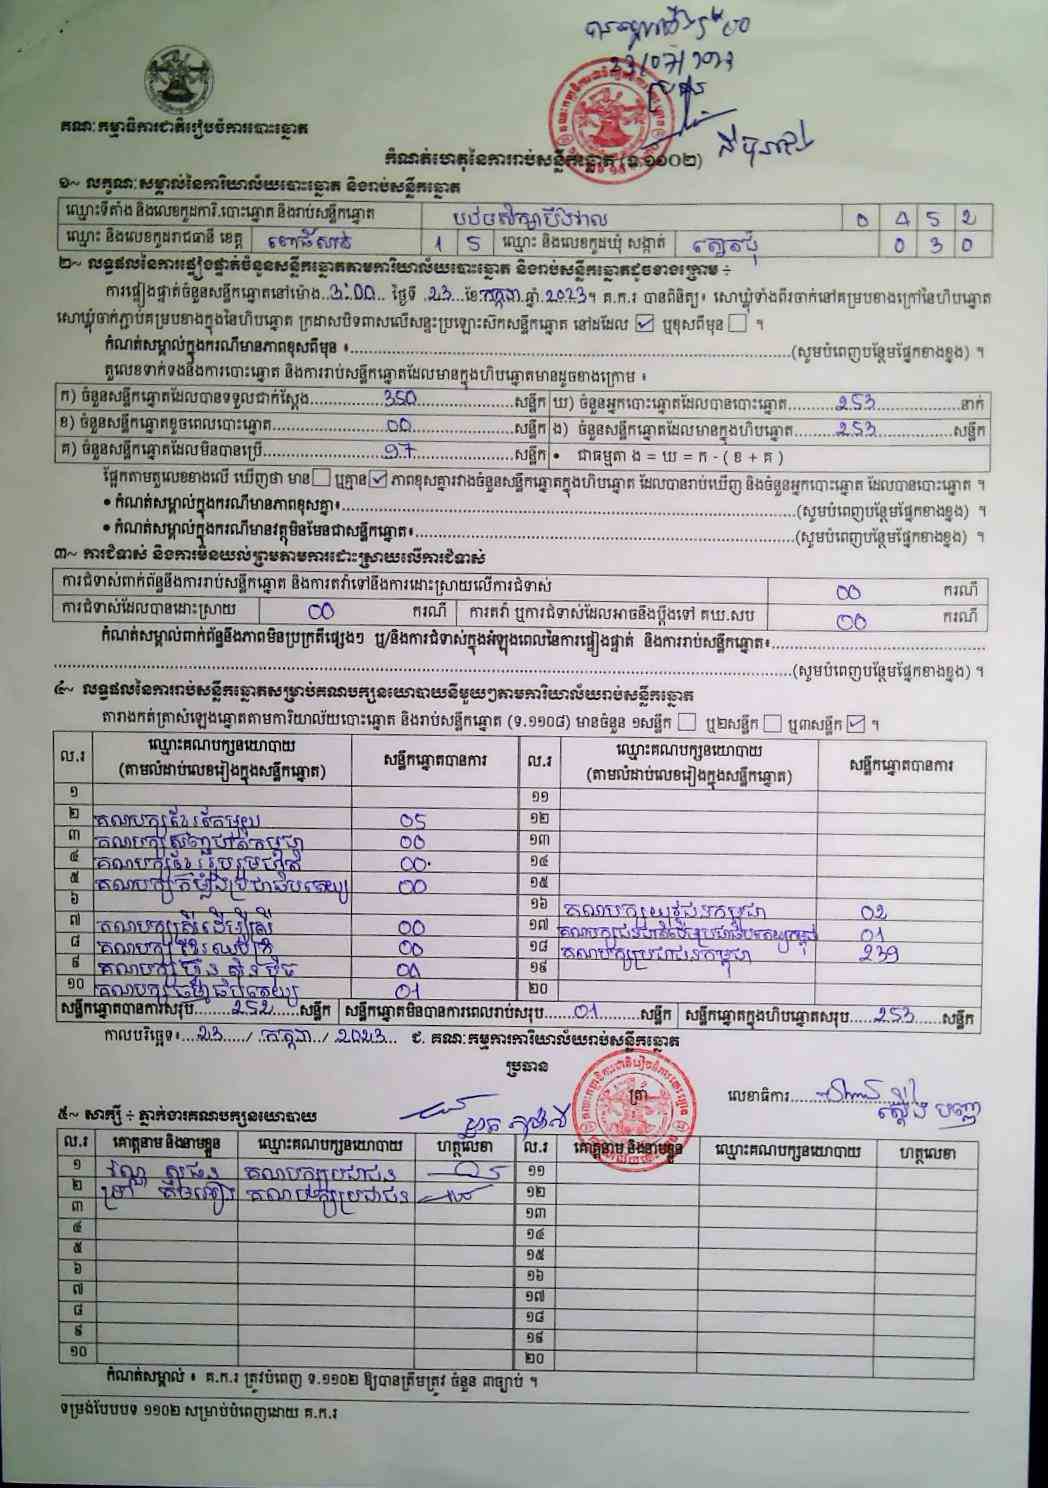 23/07/2023
គណៈកម្មាធិការជាតិរៀបចំការបោះឆ្នោត
កំណត់ហេតុនៃការរាប់សន្លឹកឆ្នោត (ទ.១១០២)
១~ លក្ខណៈសម្គាល់នៃការិយាល័យបោះឆ្នោត និងរាប់សន្លឹកឆ្នោត
ឈ្មោះទីតាំង និងលេខកូដការិ.បោះឆ្នោត និងរាប់សន្លឹកឆ្នោត 0 4 5 2
ឈ្មោះ និងលេខកូដរាជធានី ខេត្ត ពោធិ៍សាត់ 1 5 ឈ្មោះ និងលេខកូដឃុំ សង្កាត់ 0 3 0
២~ លទ្ធផលនៃការផ្ទៀងផ្ទាត់ចំនួនសន្លឹកឆ្នោតតាមការិយាល័យបោះឆ្នោត និងរាប់សន្លឹកឆ្នោតដូចខាងក្រោម ÷
ការផ្ទៀងផ្ទាត់ចំនួនសន្លឹកឆ្នោតនៅម៉ោង..3:00... ថ្ងៃទី .23...ខែ.កក្កដា.ឆ្នាំ.2023។ គ.ក.រ បានពិនិត្យ៖ សោឃ្លុំទាំងពីរចាក់នៅគម្របខាងក្រៅនៃហិបឆ្នោត
សោឃ្លុំចាក់ភ្ជាប់គម្របខាងក្នុងនៃហិបឆ្នោត ក្រដាសបិទពាសលើសន្ទះប្រឡោះស៊កសន្លឹកឆ្នោត នៅដដែល ☑ ឬខុសពីមុន ☐ ។
កំណត់សម្គាល់ក្នុងករណីមានភាពខុសពីមុន ៖...(សូមបំពេញបន្ថែមផ្នែកខាងខ្នង) ។
តួលេខទាក់ទងនឹងការបោះឆ្នោត និងការរាប់សន្លឹកឆ្នោតដែលមានក្នុងហិបឆ្នោតមានដូចខាងក្រោម ៖
ក) ចំនួនសន្លឹកឆ្នោតដែលបានទទួលជាក់ស្តែង...350...សន្លឹក ឃ) ចំនួនអ្នកបោះឆ្នោតដែលបានបោះឆ្នោត...253...នាក់
ខ) ចំនួនសន្លឹកឆ្នោតខូចពេលបោះឆ្នោត...00...សន្លឹក ង) ចំនួនសន្លឹកឆ្នោតដែលមានក្នុងហិបឆ្នោត...253...សន្លឹក
គ) ចំនួនសន្លឹកឆ្នោតដែលមិនបានប្រើ...97...សន្លឹក • ជាធម្មតា ង = ឃ = ក - ( ខ + គ )
ផ្អែកតាមតួលេខខាងលើ ឃើញថា មាន ☐ ឬគ្មាន ☑ ភាពខុសគ្នារវាងចំនួនសន្លឹកឆ្នោតក្នុងហិបឆ្នោត ដែលបានរាប់ឃើញ និងចំនួនអ្នកបោះឆ្នោត ដែលបានបោះឆ្នោត ។
• កំណត់សម្គាល់ក្នុងករណីមានភាពខុសគ្នា៖...(សូមបំពេញបន្ថែមផ្នែកខាងខ្នង) ។
• កំណត់សម្គាល់ក្នុងករណីមានវត្ថុមិនមែនជាសន្លឹកឆ្នោត៖...(សូមបំពេញបន្ថែមផ្នែកខាងខ្នង) ។
៣~ ការជំទាស់ និងការមិនយល់ព្រមតាមការដោះស្រាយលើការជំទាស់
ការជំទាស់ពាក់ព័ន្ធនឹងការរាប់សន្លឹកឆ្នោត និងការតវ៉ាទៅនឹងការដោះស្រាយលើការជំទាស់ 00 ករណី
ការជំទាស់ដែលបានដោះស្រាយ 00 ករណី ការតវ៉ា ឬការជំទាស់ដែលអាចនឹងប្តឹងទៅ គឃ.សប 00 ករណី
កំណត់សម្គាល់ពាក់ព័ន្ធនឹងភាពមិនប្រក្រតីផ្សេងៗ ឬ/និងការជំទាស់ក្នុងអំឡុងពេលនៃការផ្ទៀងផ្ទាត់ និងការរាប់សន្លឹកឆ្នោត៖...
...(សូមបំពេញបន្ថែមផ្នែកខាងខ្នង) ។
៤~ លទ្ធផលនៃការរាប់សន្លឹកឆ្នោតសម្រាប់គណបក្សនយោបាយនីមួយៗតាមការិយាល័យរាប់សន្លឹកឆ្នោត
តារាងកត់ត្រាសំឡេងឆ្នោតតាមការិយាល័យបោះឆ្នោត និងរាប់សន្លឹកឆ្នោត (ទ.១១០៨) មានចំនួន ១សន្លឹក ☐ ឬ២សន្លឹក ☐ ឬ៣សន្លឹក ☑ ។
ល.រ ឈ្មោះគណបក្សនយោបាយ (តាមលំដាប់លេខរៀងក្នុងសន្លឹកឆ្នោត) សន្លឹកឆ្នោតបានការ ល.រ ឈ្មោះគណបក្សនយោបាយ (តាមលំដាប់លេខរៀងក្នុងសន្លឹកឆ្នោត) សន្លឹកឆ្នោតបានការ
១ ១១
២ គណបក្សខ្មែរតែមួយ 05 ១២
៣ គណបក្សសញ្ជាតិកម្ពុជា 00 ១៣
៤ គណបក្សខ្មែររួបរួមជាតិ 00 ១៤
៥ គណបក្សកម្លាំងប្រជាធិបតេយ្យ 00 ១៥
៦ ១៦ គណបក្សយុវជនកម្ពុជា 02
៧ គណបក្សស្ត្រីដើម្បីស្ត្រី 00 ១៧ 01
៨ គណបក្ស 00 ១៨ គណបក្សប្រជាជនកម្ពុជា 239
៩ គណបក្ស ហ្វ៊ុនស៊ិនប៉ិច ១៩
១០ គណបក្សធម្មាធិបតេយ្យ 01 ២០
សន្លឹកឆ្នោតបានការសរុប...252...សន្លឹក សន្លឹកឆ្នោតមិនបានការពេលរាប់សរុប...01...សន្លឹក សន្លឹកឆ្នោតក្នុងហិបឆ្នោតសរុប...253...សន្លឹក
កាលបរិច្ឆេទ៖...23.../ កក្កដា / 2023... ជ. គណៈកម្មការការិយាល័យរាប់សន្លឹកឆ្នោត
ប្រធាន
ត្រា
លេខាធិការ
៥~ សាក្សី ÷ ភ្នាក់ងារគណបក្សនយោបាយ
ល.រ គោត្តនាម និងនាមខ្លួន ឈ្មោះគណបក្សនយោបាយ ហត្ថលេខា ល.រ គោត្តនាម និងនាមខ្លួន ឈ្មោះគណបក្សនយោបាយ ហត្ថលេខា
១ គណបក្សប្រជាជន ១១
២ គណបក្សប្រជាជន ១២
៣ ១៣
៤ ១៤
៥ ១៥
៦ ១៦
៧ ១៧
៨ ១៨
៩ ១៩
១០ ២០
កំណត់សម្គាល់ ៖ គ.ក.រ ត្រូវបំពេញ ទ.១១០២ ឱ្យបានត្រឹមត្រូវ ចំនួន ៣ច្បាប់ ។
ទម្រង់បែបបទ ១១០២ សម្រាប់បំពេញដោយ គ.ក.រ